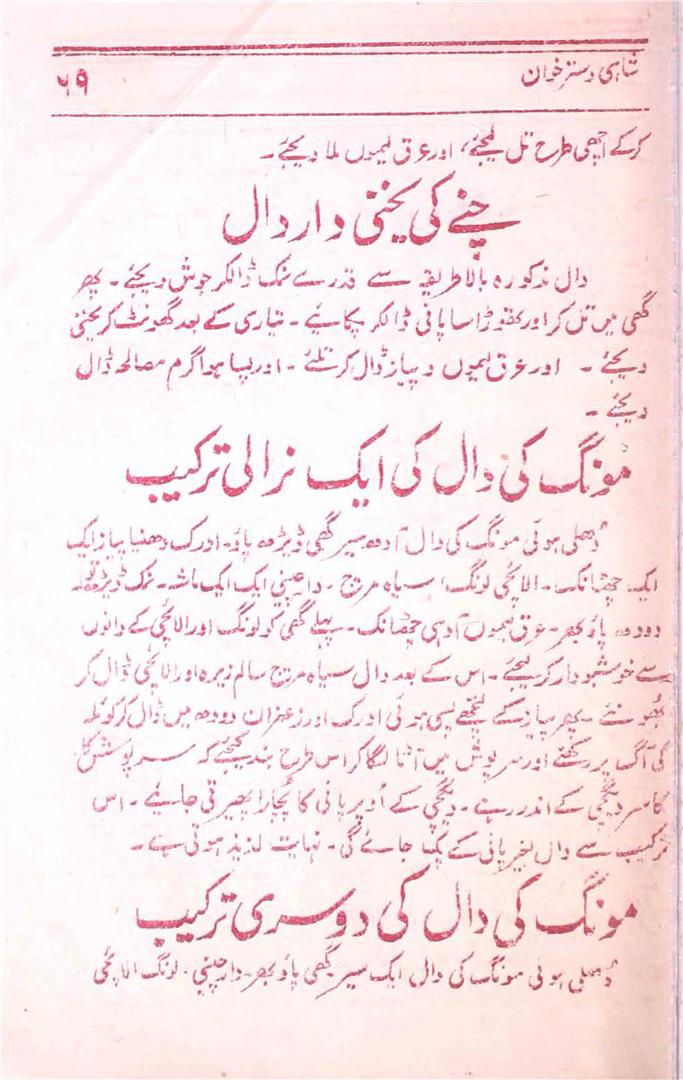 شاہی دستر خوان
۶۹
کر کے اچھی طرح تل لیجئے، اور عرق لیموں ملا دیجئے۔
چنے کی یخنی دار دال
دال مذکورہ بالا طریقہ سے قدرے نمک ڈالکر جوش دیجئے۔ پھر
گھی میں تل کر اور تھوڑا سا پانی ڈالکر پکائیے۔ تیاری کے بعد گھونٹ کر یخنی
دیجئے۔ اور عرق لیموں و پیاز ڈال کر تلئے۔ اور پسا ہوا گرم مصالحہ ڈال
دیجئے۔
مونگ کی دال کی ایک نرالی ترکیب
دُھلی ہوئی مونگ کی دال آدھ سیر گھی ڈیڑھ پاؤ۔ ادرک دھنیا پیاز ایک
ایک چھٹانک۔ الائچی لونگ سیاہ مرچ۔ دار چینی ایک ایک ماشہ۔ نمک ڈیڑھ تولہ
دودھ پاؤ بھر۔ عرق لیموں آدہی چھٹانک۔ پہلے گھی کو لونگ اور الائچی کے دانوں
سے خوشبودار کر لیجئے۔ اس کے بعد دال سیاہ مرچ سالم زیرہ اور الائچی ڈال کر
بُھونئے۔ پھر پیاز کے لچھے پسی ہوئی ادرک اور زعفران دودھ میں ڈال کر کوئلہ
کی آگ پر رکھئے اور سرپوش میں آٹا لگا کر اس طرح بند کیجئے کہ سرپوش کا
کا سر دیگچی کے اندر رہے۔ دیگچی کے اُوپر پانی کا پُچارا پھیرتی جائیے۔ اس
ترکیب سے دال بغیر پانی کے پک جائے گی۔ نہایت لذیذ ہوتی ہے۔
مونگ کی دال کی دوسری ترکیب
دُھلی ہوئی مونگ کی دال ایک سیر گھی پاؤ بھر۔ دار چینی۔ لونگ الائچی